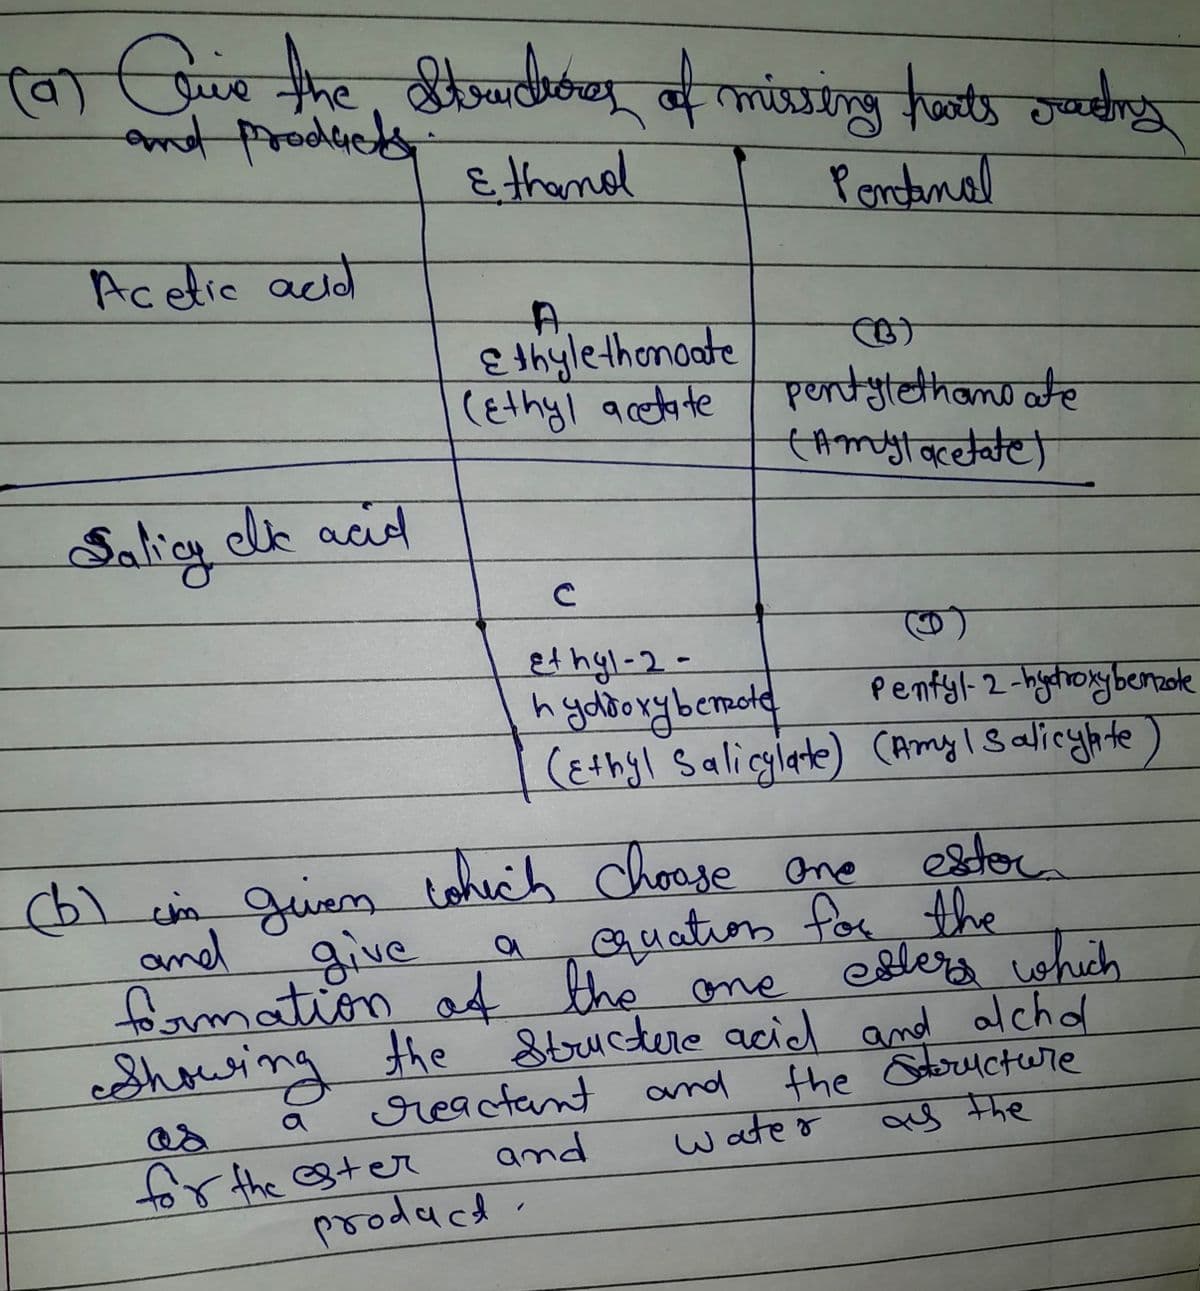 (a) Give the Structures of missing parts
and products.
Ethanol Pentanol
Acetic acid
A (B)
Ethylethanoate
(Ethyl acetate pentylethanoate
(Amylacetate)
Salicyclic acid
C
(D)
Ethyl-2-
hydroxybenzote Pentyl-2-hydroxybenzote
(Ethyl Salicylate) (Amyl Salicylate)
(b) in given which choose one ester
and give a equation for the
formation of the one esters which
Showing the Structere acid and alchol
as a reactant and the Structure
for the ester and water as the
product.